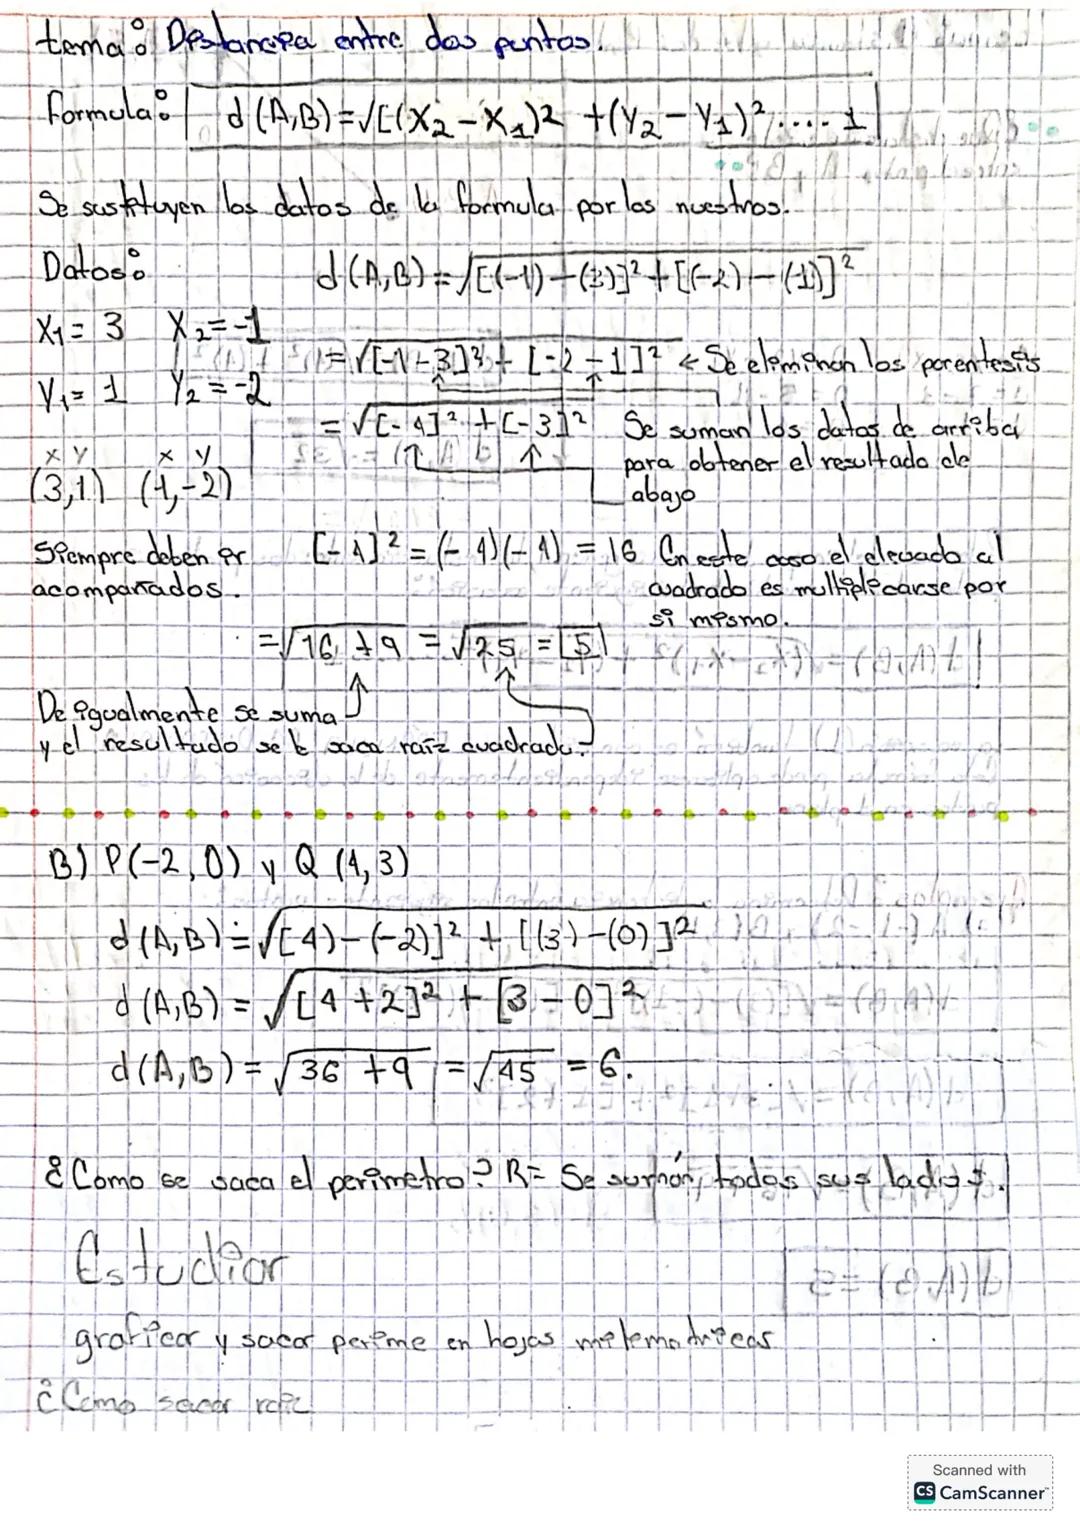 tema: Distancia entre dos puntos.
Formula: d(A,B)=√[(X₂-X₁)2 +(Y₂-Y₁)².... 1
Se sustituyen los datos de la formula por los nuestros.
Datos: d(A,B)=√[(-1)-(3)]²+[(-2)-(1)]²
X₁= 3 X₂=-1
=√[-1-3]²+ [-2-1]² ← Se eliminan los parentesis
Y₁= 1 Y₂=-2
=√[-4]²+[-3]² Se suman los datos de arriba
para obtener el resultado de
abajo
x y x y
(3,1) (1,-2)
Siempre deben ir
acompañados.
[-4]²=(-4)(-4) = 16 En este caso el elevado al
cuadrado es multiplicarse por
si mismo.
=√16 +9 =√25 = 5
De igualmente se suma
y el resultado se le saca raíz cuadrada.
B) P(-2,0) y Q (4,3)
d(A,B)=√[4)-(-2)]² + [(3)-(0)]²
d(A,B) = √[4+2]² + [3-0]²
d(A,B)=√36 +9 =√45 = 6.
¿Como se saca el perimetro? R= Se suman, todos sus lados.
Estudiar
graficar y sacar perime en hojas milematricas
¿Como sacar raiz
Scanned with
CS CamScanner